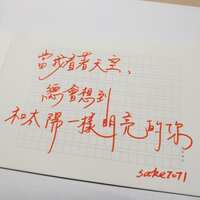 當我看著天空、
總會想到
和太陽一樣明亮的妳
sake7071